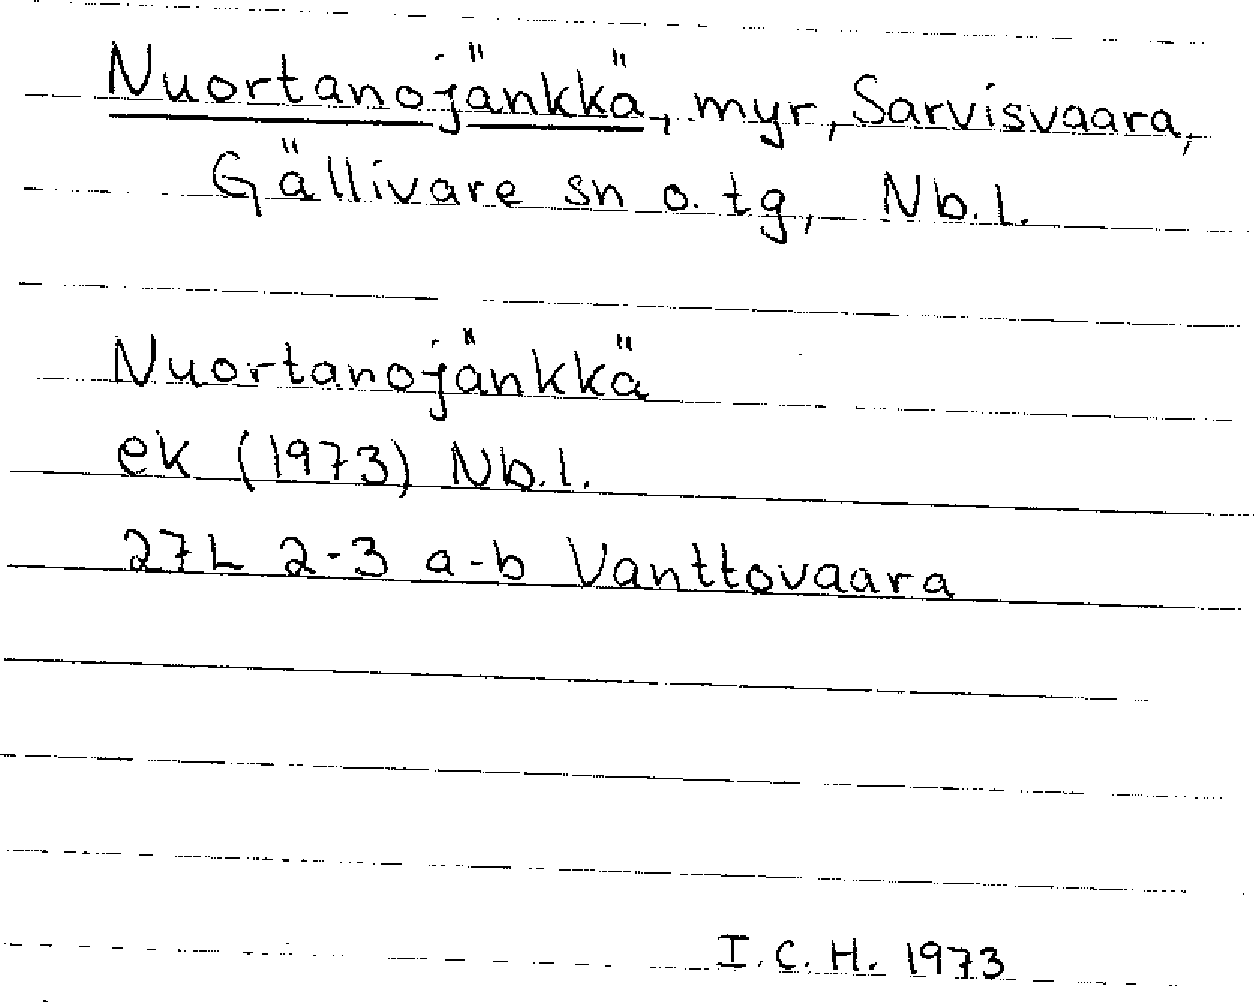 Nuortanojänkkä, myr, Sarvisvaara,
Gällivare sn o. tg, Nb.l.
Nuortanojänkkä
ek (1973) Nb.l.
27L 2-3 a-b Vanttovaara
I.C.H. 1973